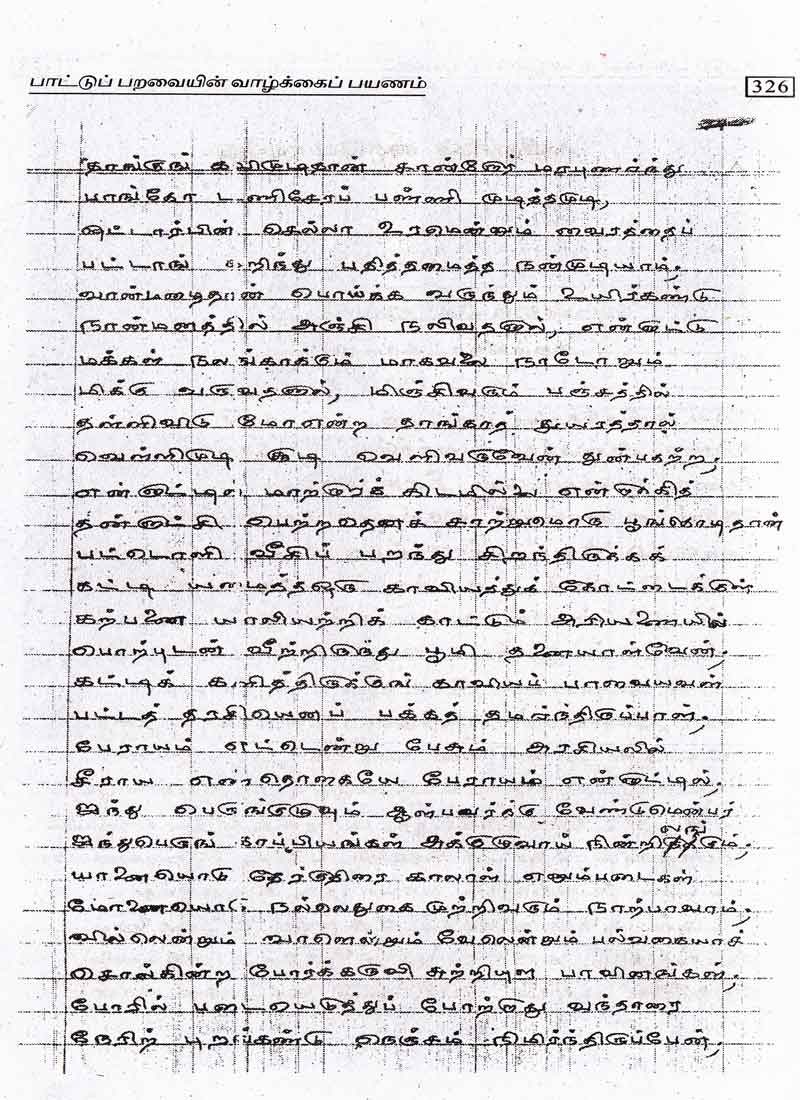 பாட்டுப் பறவையின் வாழ்க்கைப் பயணம்
326
தாங்குங் கவிமுடிதான் சான்றோர் மரபுணர்ந்து
யாங்கோ டணிசேரப் பண்ணி முடித்தமுடி,
ஒட்டார்பின் செல்லா உரமென்னும் வைரத்தைப்
பட்டாங் கறிந்து பதித்தமைத்த நன்முடியாம்;
வான்மழைதான் பொய்க்க வருந்தும் உயிர்கண்டு
நான்மனத்தில் அஞ்சி நலிவதனால், என்னாட்டு
மக்கள் நலங்காக்கும் மாகவலை நாடோறும்
மிக்கு வருவதனால், மிஞ்சிவரும் பஞ்சத்தில்
தள்ளிவிடு மோஎன்ற தாங்காத் துயரத்தால்
வெள்ளிமுடி சூடி வெளிவருவேன் துன்பதற்ற;
என்னாட்டில் மாற்றார்க் கிடமில்லை என்னாக்கித்
தன்னாட்சி பெற்றதெனச் சாற்றுமொரு பூங்கொடிதான்
பட்டொளி வீசிப் பறந்து சிறந்திருக்கக்
கட்டி யமைத்தஒரு காவியத்துக் கோட்டைக்குள்
கற்பனை யாலியற்றிக் காட்டும் அரியணையில்
பொற்புடன் வீற்றிருந்து பூமி தனையாள்வேன்;
கட்டிக் களித்திருக்குங் காவியப் பாவையவள்
பட்டத் தரசியெனப் பக்கத் தமர்ந்திருப்பாள்;
பேராயம் எட்டென்று பேசும் அரசியலில்
சீராய எண்தொகையே பேராயம் என்னாட்டில்;
ஐந்து பெருங்குழுவும் ஆள்பவர்க்கு வேண்டுமென்பர்
ஐந்துபெருங் காப்பியங்கள் அக்குழுவாய் நின்றிலங்கும்;
யானையொடு தேர்குதிரை காலாள் எனும்படைகள்
மோனையொடு நல்லெதுகை முற்றிவரும் நாற்பாவாம்;
வில்லென்றும் வாளென்றும் வேலென்றும் பல்வகையாச்
சொல்கின்ற போர்க்கருவி சுற்றியுள பாவினங்கள்;
போரில் படையெடுத்துப் போற்றாது வந்தாரை
நேரிற் புறங்கண்டு நெஞ்சம் நிமிர்ந்திருப்பேன்;